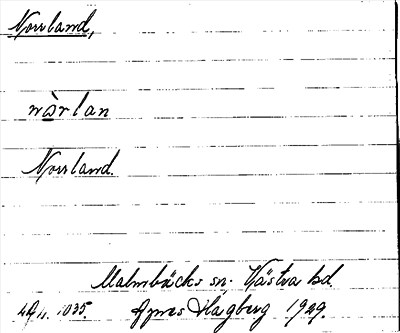 Norrland,
nàrlan
Norrland.
Malmbäcks sn. Västra hd.
1035. Agnes Hagberg 1929.